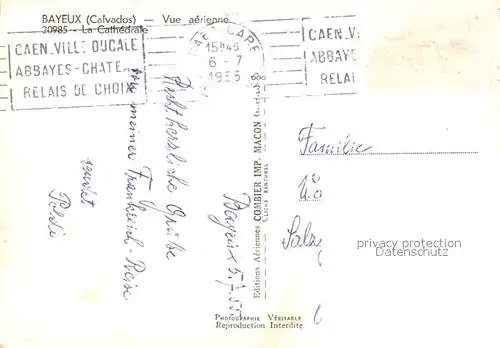 BAYEUX (Calvados) — Vue aérienne
20985 - La Cathédrale
CAEN.VILLE DUCALE
ABBAYES-CHATE
RELAIS DE CHOIX
CAEN GARE
15H45
6 - 7
1955
CAEN.V
ABBAYE
RELAI
Recht herzliche Grüße
von meiner Frankreich-Reise
sendet
Poldi
Bayeux 5.7.55
Editions Aériennes COMBIER IMP. MACON
PHOTOGRAPHIE VÉRITABLE
Reproduction Interdite
Familie
Salz
privacy protection
Datenschutz